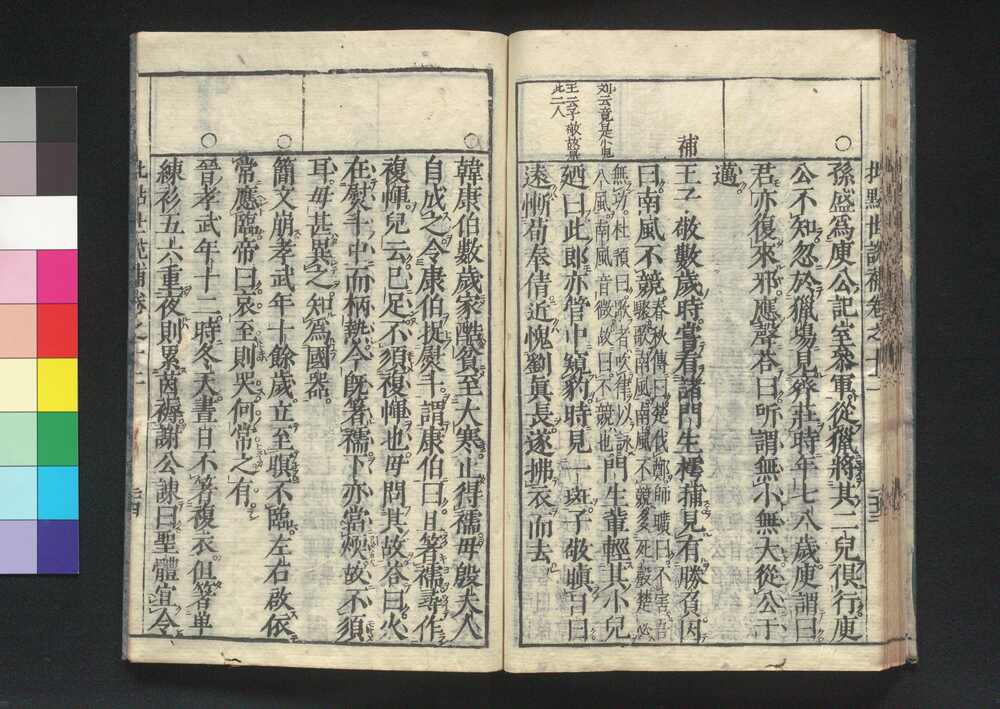 批點世說補卷之十二
孫盛爲庾公記室參軍從獵將其二兒俱行庾
公不知忽於獵場見齊莊時年七八歲庾謂曰
君亦復來邪應聲答曰所謂無小無大從公于
邁
補
王子敬數歲時嘗看諸門生樗蒱見有勝負因
曰南風不競
春秋傳曰楚伐鄭師曠曰不害吾
驟歌南風南風不競多死聲楚必
無功杜預曰歌者吹律以詠
八風南風音微故曰不競也
門生輩輕其小兒
廼曰此郎亦管中窺豹時見一斑子敬瞋目曰
遠慚荀奉倩近愧劉眞長遂拂衣而去
劉云竟是小鬼
王云子敬
此二人
三十三
韓康伯數歲家酷貧至大寒止得襦母殷夫人
自成之令康伯捉熨斗謂康伯曰且著襦尋作
複㡓兒云已足不須複㡓也母問其故答曰火
在熨斗中而柄熱今旣著襦下亦當煗故不須
耳母甚異之知爲國器
簡文崩孝武年十餘歲立至暝不臨左右啟依
常應臨帝曰哀至則哭何常之有
晉孝武年十二時冬天晝日不著複衣但著單
練衫五六重夜則累茵褥謝公諫曰聖體宜令
批點世說補卷之十二
三十四